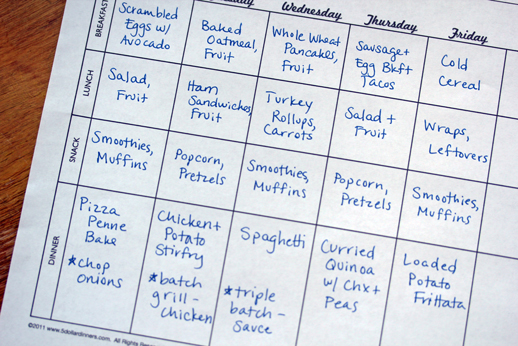 Wednesday
Thursday
Friday
BREAKFAST
Scrambled
Eggs w/
Avocado
Baked
Oatmeal,
Fruit
Whole Wheat
Pancakes,
Fruit
Sausage +
Egg Bkft
Tacos
Cold
Cereal
LUNCH
Salad,
Fruit
Ham
Sandwiches,
Fruit
Turkey
Rollups,
Carrots
Salad +
Fruit
Wraps,
Leftovers
SNACK
Smoothies,
Muffins
Popcorn,
Pretzels
Smoothies,
Muffins
Popcorn,
Pretzels
Smoothies,
Muffins
DINNER
Pizza
Penne
Bake
★chop
onions
Chicken +
Potato
Stirfry
★batch
grill -
Chicken
Spaghetti
★triple
batch -
Sauce
Curried
Quinoa
w/ Chx +
Peas
Loaded
Potato
Frittata
©2011 www.5dollardinners.com. All Rights